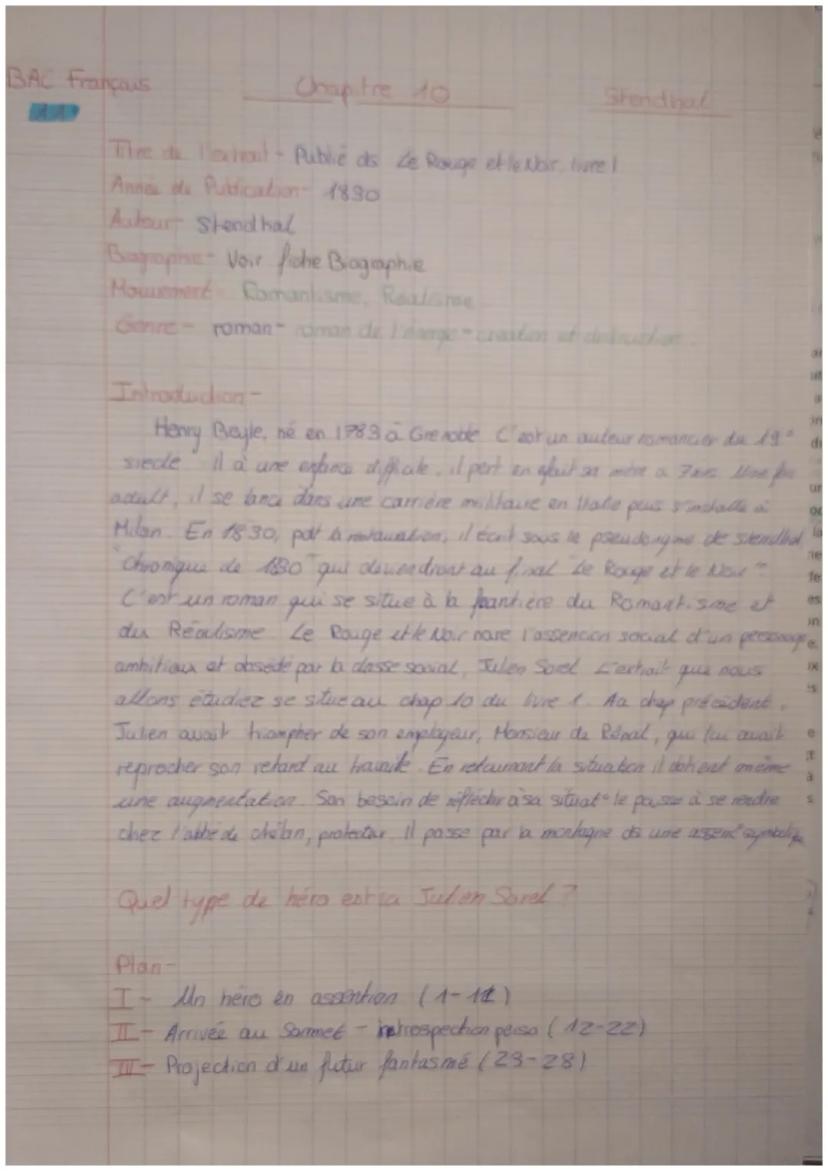 BAC Français Chapitre 10 Stendhal
Titre de l'extrait - Publié ds Le Rouge et le Noir, livre 1
Année de Publication - 1830
Auteur - Stendhal
Biographie - Voir fiche Biographie
Mouvement - Romantisme, Réalisme
Genre - roman - roman de l'énergie = creation et destruction.
Introduction -
Henry Beyle, né en 1783 à Grenoble C'est un auteur romancier du 19e
siecle Il à une enfance difficile, il pert en efait sa mère a 7 ans Une fois
adult, il se lance dans une carrière militaire en Italie puis s'installe à
Milan. En 1830, la restauration, il écrit sous le pseudonyme de stendhal
"Chronique de 1830" qui deviendront au final "Le Rouge et le Noir".
C'est un roman qui se situe à la frantière du Romantisme et
du Réalisme Le Rouge et le Noir nare l'assencion social d'un personnage
ambitieux et obsédé par la classe social, Julien Sorel L'extrait que nous
allons étudiez se situe au chap 10 du livre 1. Au chap précédent,
Julien avait triompher de son employeur, Monsieur de Rénal, qui lui avait
reprocher son retard au travaile. En retournant la situation il obtient même
une augmentation. Son besoin de réfléchir à sa situat° le pousse à se rendre
chez l'abbé de chélan, protecteur. Il passe par la montagne ds une symbolique
Quel type de héro est ça Julien Sorel ?
Plan -
I - Un héro en assention (1-11)
II - Arrivée au Sommet - introspection perso (12-22)
III - Projection d'un futur fantasmé (23-28)